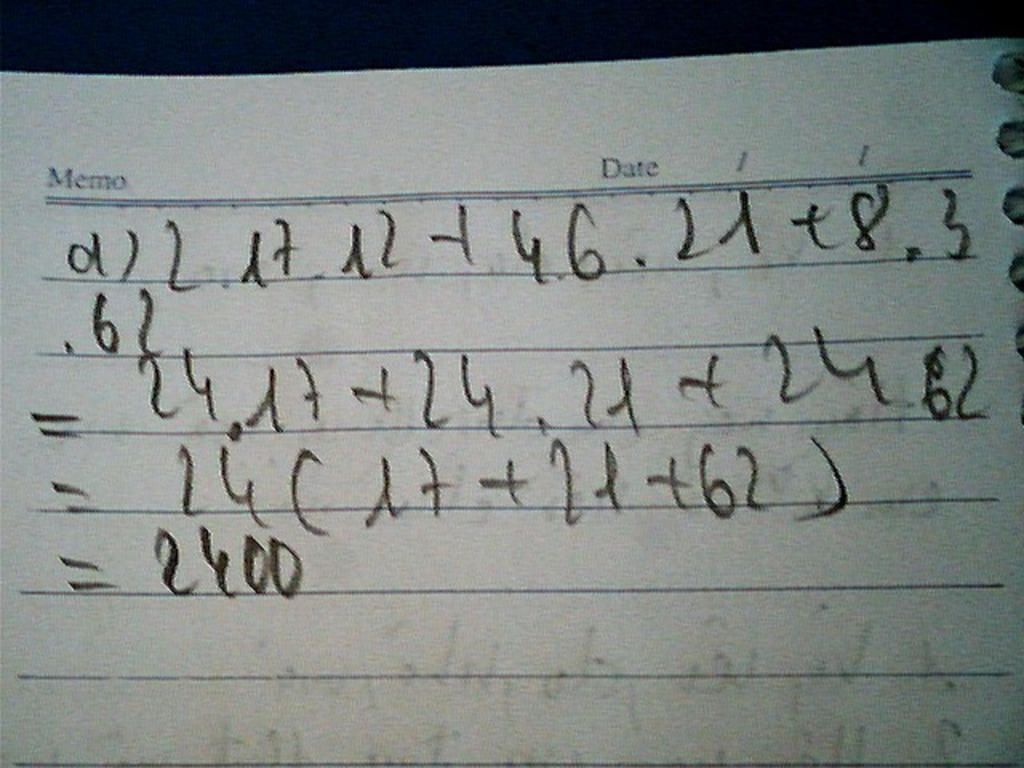 Memo Date / /
a) 2.17.12 + 4.6.21 + 8.3
.62
= 24.17 + 24.21 + 24 62
= 24 ( 17 + 21 + 62 )
= 2400